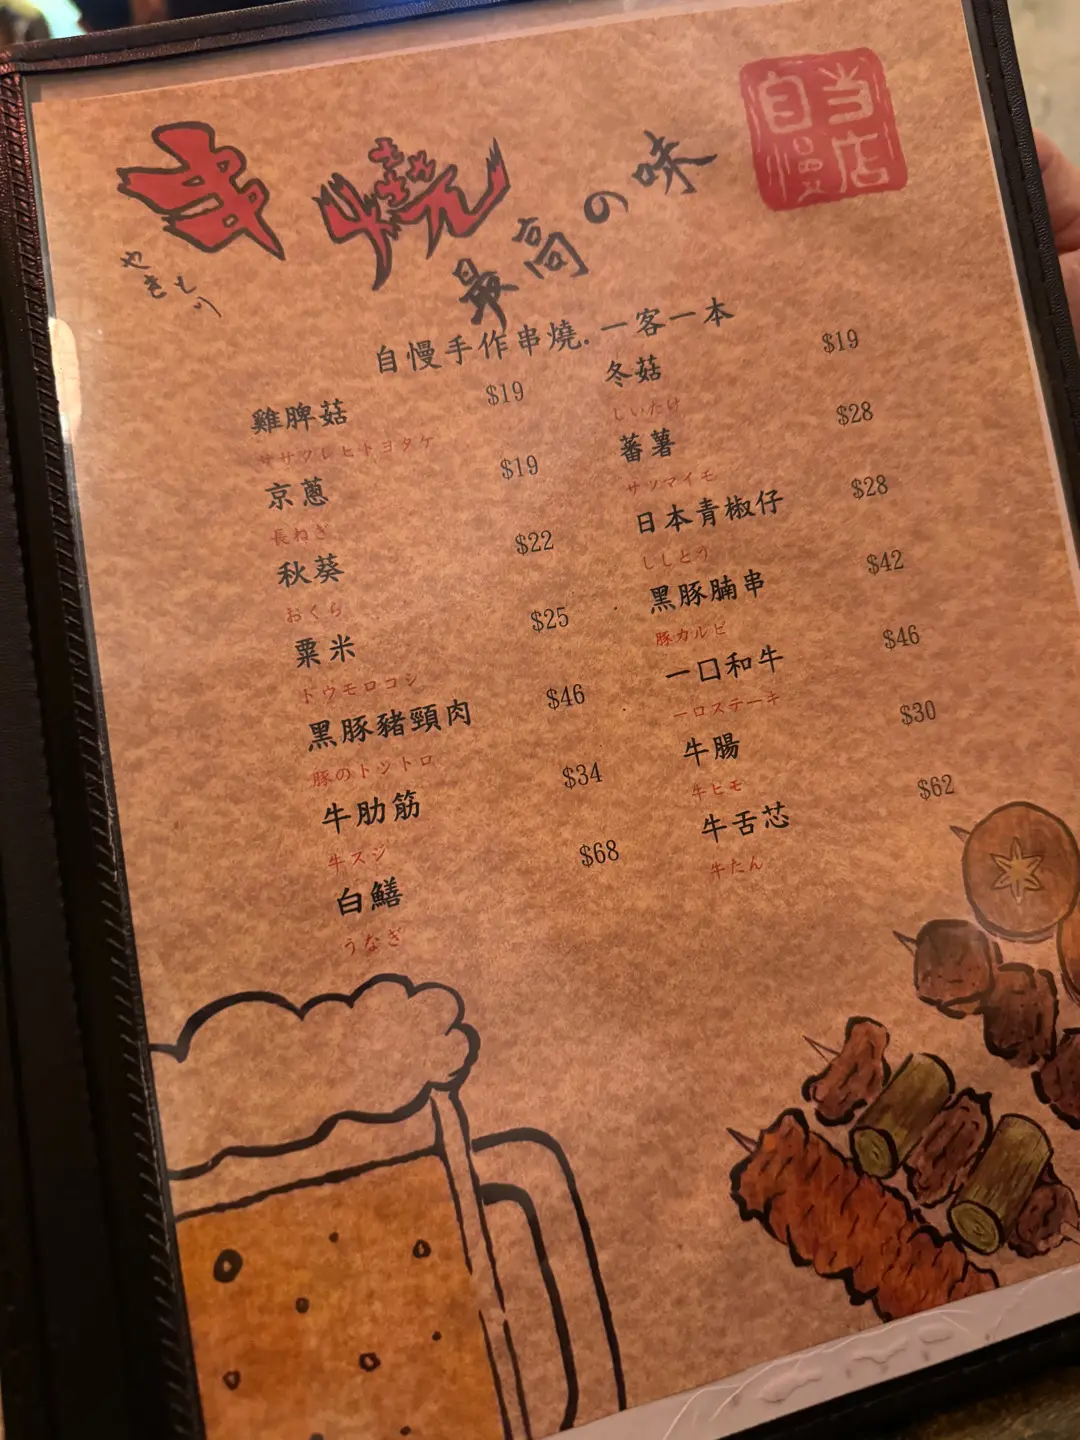 串燒
やきとり
最高の味
当店自慢
自慢手作串燒. 一客一本
雞脾菇 $19
ササクレヒトヨタケ
京蔥 $19
長ねぎ
秋葵 $22
おくら
粟米 $25
トウモロコシ
黑豚豬頸肉 $46
豚のトントロ
牛肋筋 $34
牛スジ
白鱔 $68
うなぎ
冬菇 $19
しいたけ
蕃薯 $28
サツマイモ
日本青椒仔 $28
ししとう
黑豚腩串 $42
豚カルビ
一口和牛 $46
一口ステーキ
牛腸 $30
牛ヒモ
牛舌芯 $62
牛たん